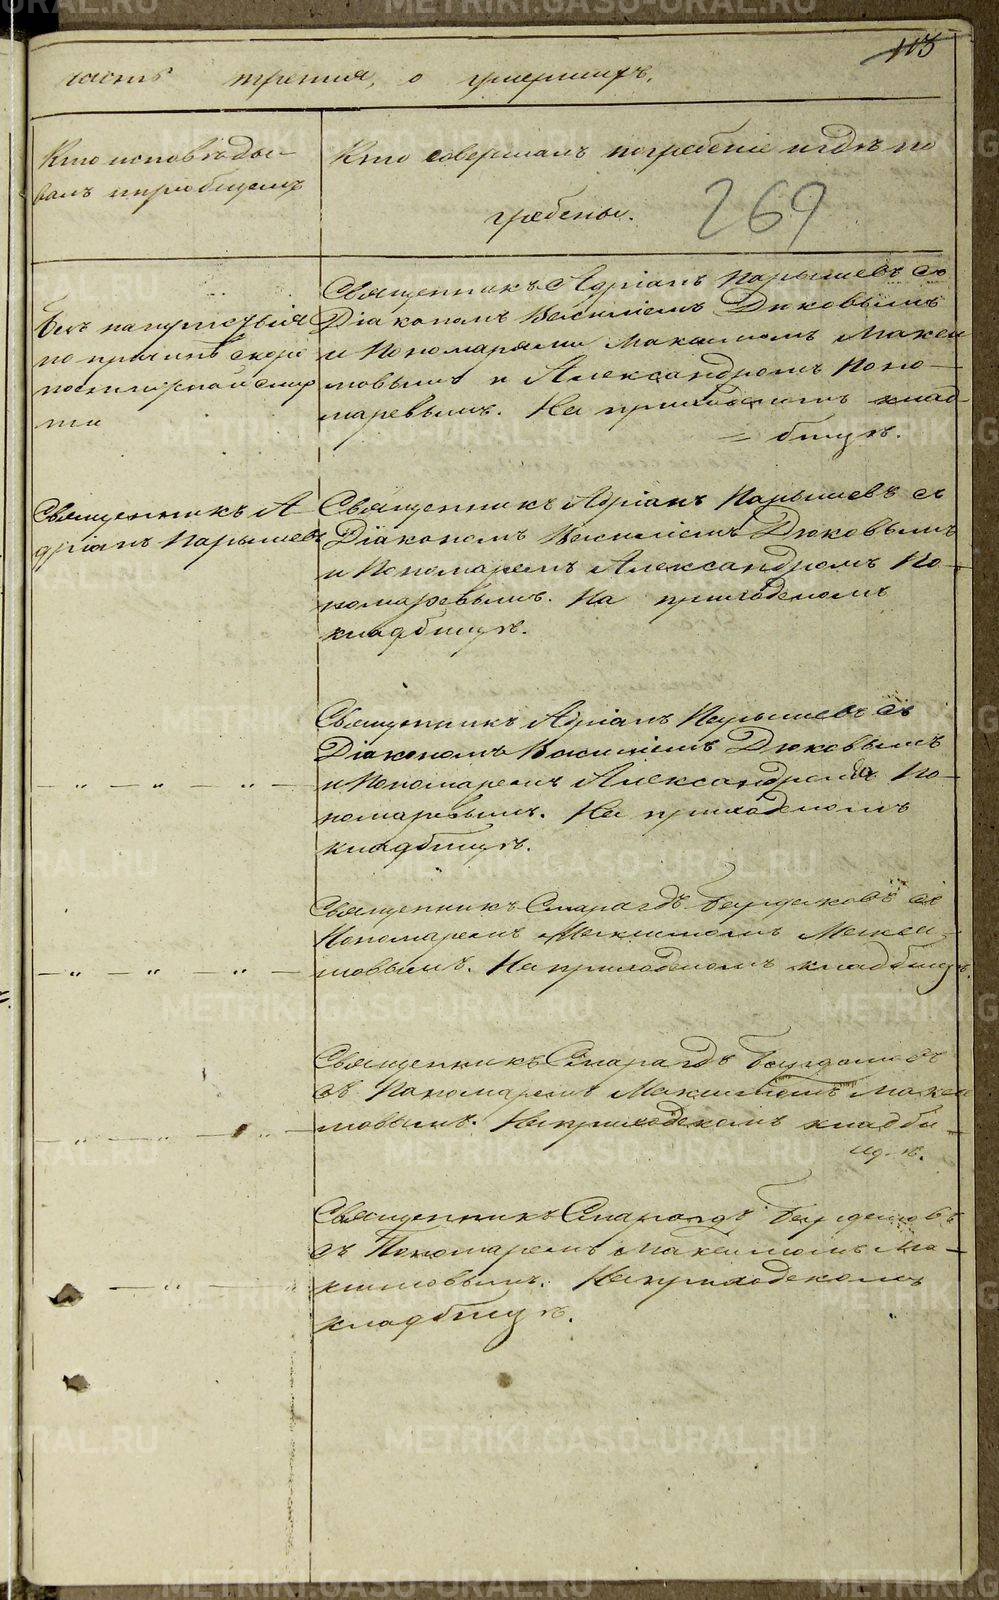 METRIKI.GASO-URAL.RU
113
часть третія, о умершихъ.
Кто исповѣды-
валъ и пріобщалъ
Кто совершалъ погребеніе и гдѣ по
гребены.
269
Безъ напутствія
по причинѣ скоро
постижной смер
ти
Священникъ Адріанъ Парышевъ съ
Діакономъ Василіемъ Дюковымъ
и Пономарями Максимомъ Макси
мовымъ и Александромъ Поно-
маревымъ. На приходскомъ клад-
бищѣ.
Священникъ А
дріанъ Парышевъ
Священникъ Адріанъ Парышевъ съ
Діакономъ Василіемъ Дюковымъ
и Пономаремъ Александромъ По-
номаревымъ. На приходскомъ
кладбищѣ.
— „ — „ — „ —
Священникъ Адріанъ Парышевъ съ
Діакономъ Василіемъ Дюковымъ
и Пономаремъ Александромъ По-
номаревымъ. На приходскомъ
кладбищѣ.
— „ — „ — „ —
Священникъ Смарагдъ съ
Пономаремъ Максимомъ Макси-
мовымъ. На приходскомъ кладбищѣ.
— „ — „ — „ —
Священникъ Смарагдъ
съ Пономаремъ Максимомъ Макси
мовымъ. На приходскомъ кладби-
щѣ.
— „ — „ —
Священникъ Смарагдъ
съ Пономаремъ Максимомъ Ма-
ксимовымъ. На приходскомъ
кладбищѣ.